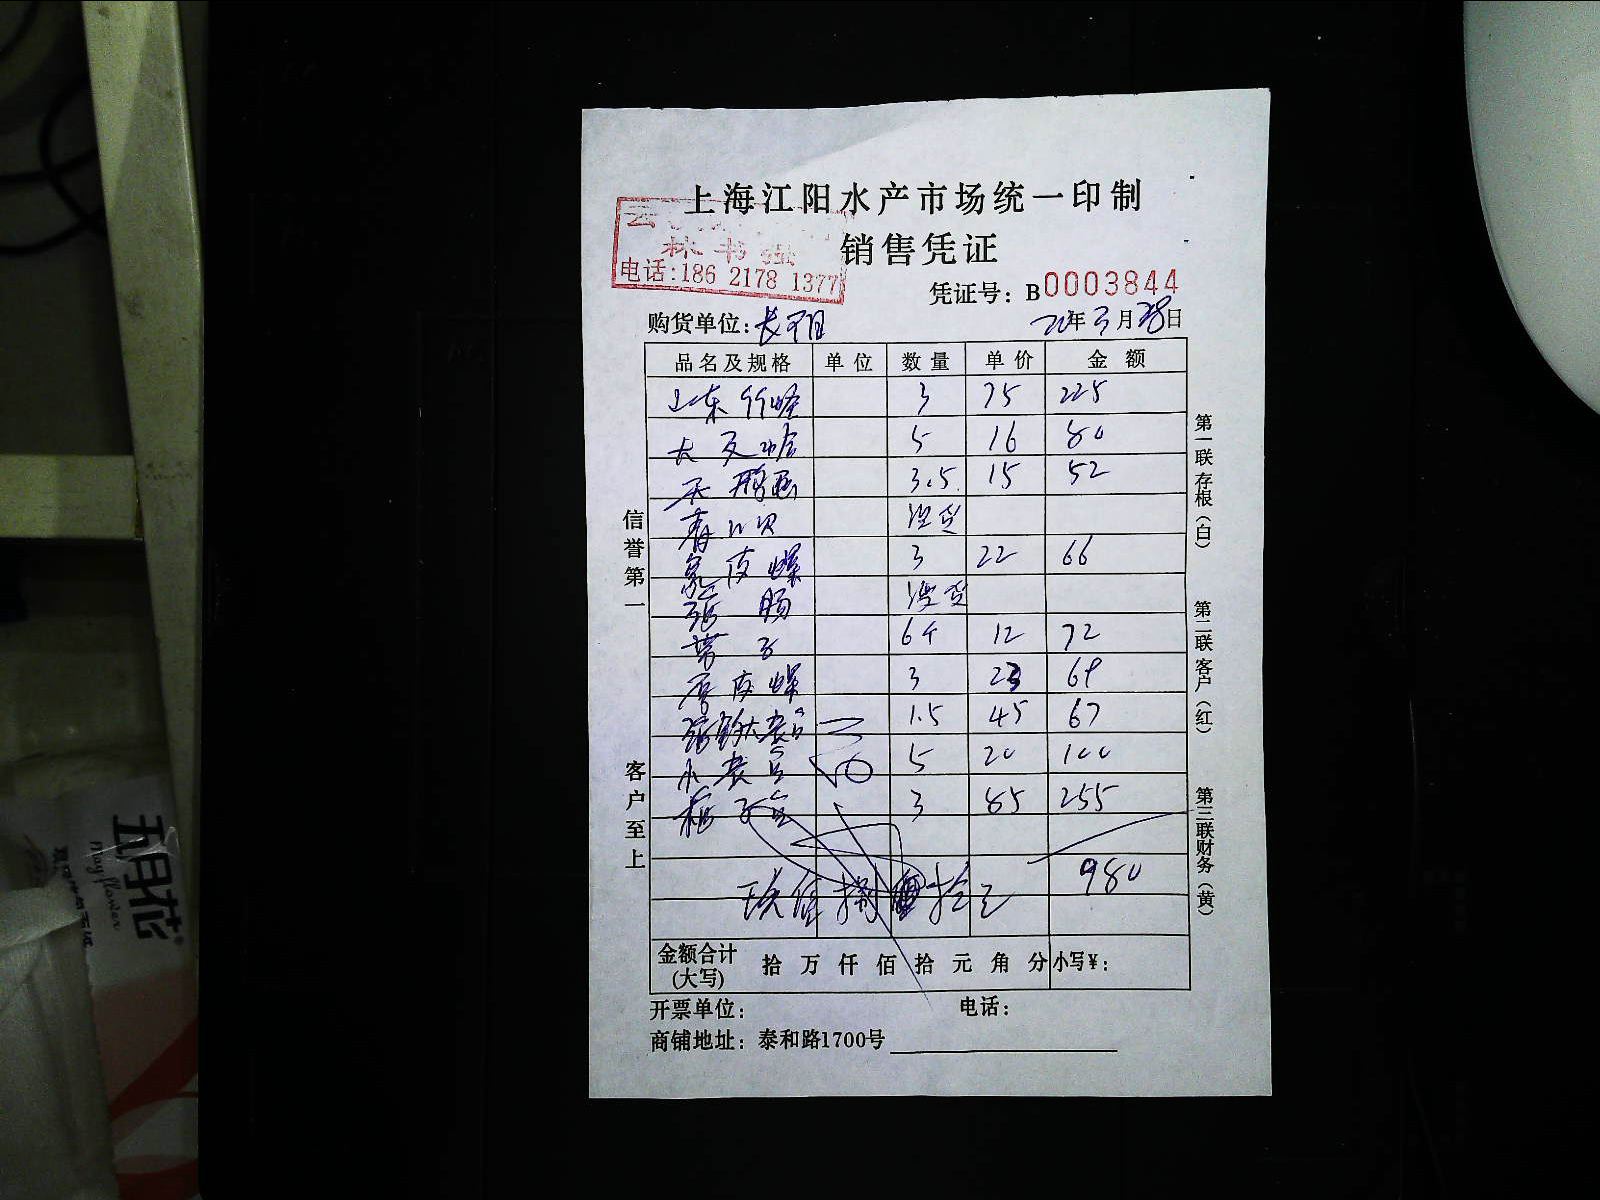 上海江阳水产市场统一印制
销售凭证
林书强
电话:186 2178 1377
凭证号: B0003844
购货单位:
年3月28日
品名及规格 单位 数量 单价 金额
山东竹蛏 3 75 225
大文蛤 5 16 80
天鹅蛋 3.5 15 52
青口贝 没货
象皮螺 3 22 66
海肠 没货
带子 6个 12 72
香皮螺 3 23 69
1.5 45 67
小 5 20 100
3 85 255
玖佰捌拾元 980
金额合计(大写) 拾 万 仟 佰 拾 元 角 分 小写¥:
开票单位: 电话:
商铺地址: 泰和路1700号
信誉第一
客户至上
第一联存根(白)
第二联客户(红)
第三联财务(黄)
五月花
May flower